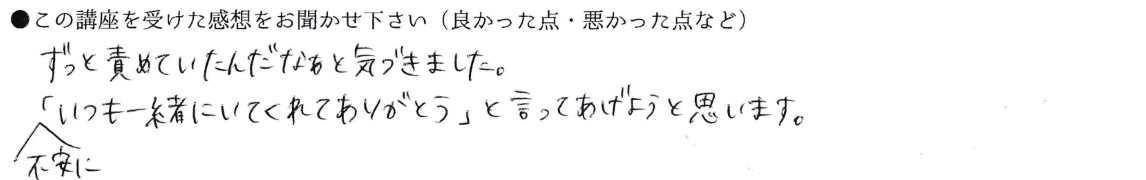 ●この講座を受けた感想をお聞かせ下さい（良かった点・悪かった点など）
ずっと責めていたんだなぁと気づきました。
「いつも一緒にいてくれてありがとう」と言ってあげようと思います。
不安に